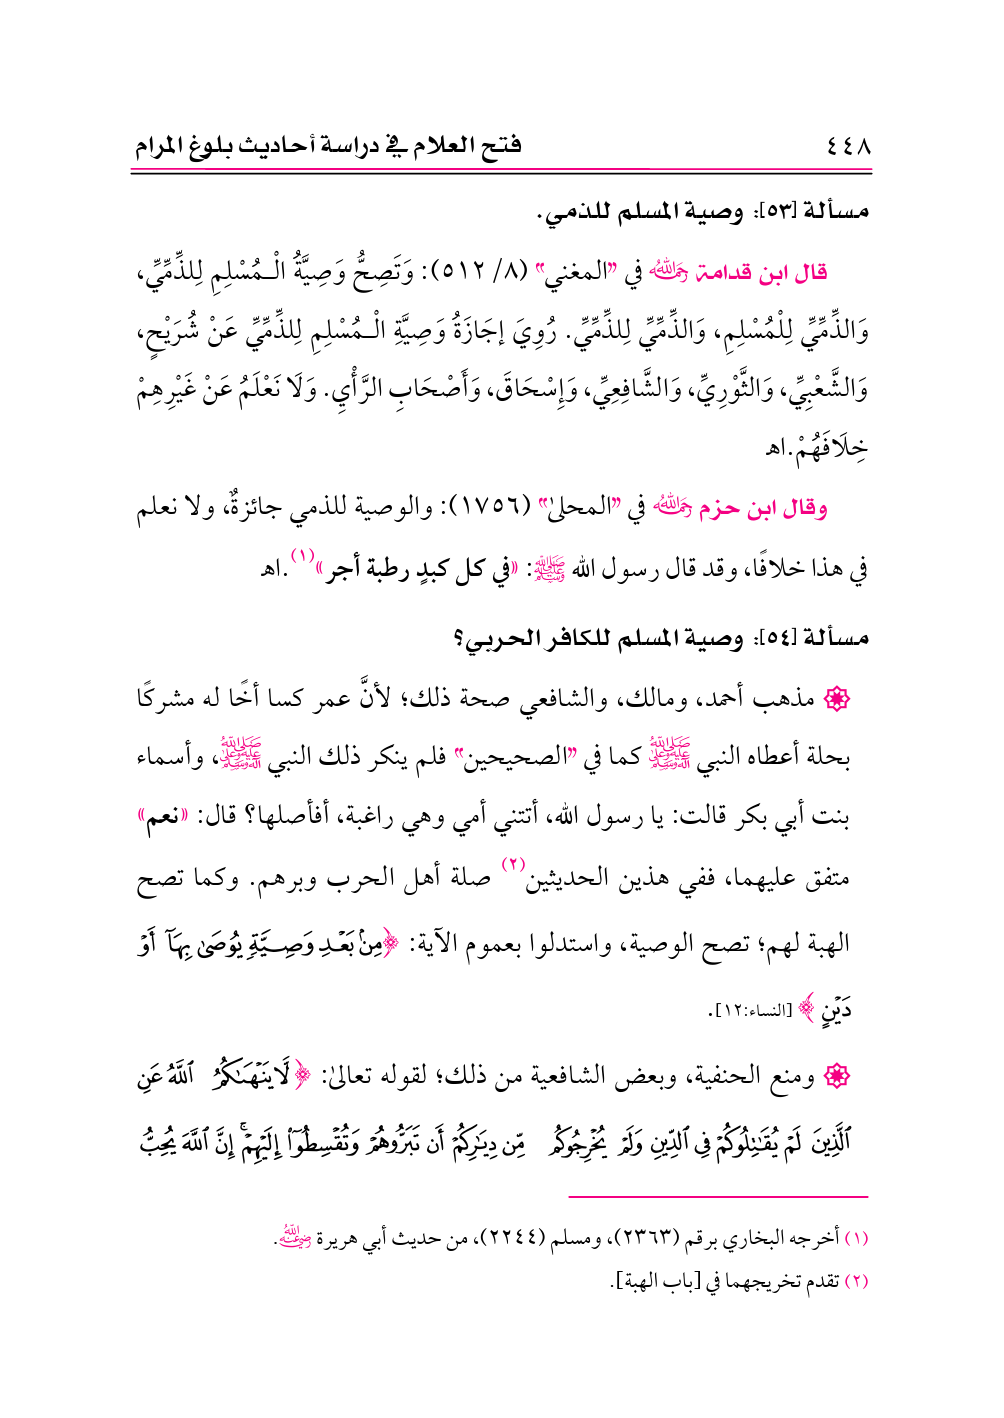 ٤٤٨ فتح العلام في دراسة أحاديث بلوغ المرام
مسألة [٥٣]: وصية المسلم للذمي.
قال ابن قدامة رحمه الله في "المغني" (٨/ ٥١٢): وَتَصِحُّ وَصِيَّةُ الْـمُسْلِمِ لِلذِّمِّيِّ،
وَالذِّمِّيِّ لِلْمُسْلِمِ، وَالذِّمِّيِّ لِلذِّمِّيِّ. رُوِيَ إجَازَةُ وَصِيَّةِ الْـمُسْلِمِ لِلذِّمِّيِّ عَنْ شُرَيْحٍ،
وَالشَّعْبِيِّ، وَالثَّوْرِيِّ، وَالشَّافِعِيِّ، وَإِسْحَاقَ، وَأَصْحَابِ الرَّأْيِ. وَلَا نَعْلَمُ عَنْ غَيْرِهِمْ
خِلَافَهُمْ.اهـ
وقال ابن حزم رحمه الله في "المحلى" (١٧٥٦): والوصية للذمي جائزةٌ، ولا نعلم
في هذا خلافًا، وقد قال رسول الله ﷺ: «في كل كبدٍ رطبة أجر»(١).اهـ
مسألة [٥٤]: وصية المسلم للكافر الحربي؟
مذهب أحمد، ومالك، والشافعي صحة ذلك؛ لأنَّ عمر كسا أخًا له مشركًا
بحلة أعطاه النبي ﷺ كما في "الصحيحين" فلم ينكر ذلك النبي ﷺ، وأسماء
بنت أبي بكر قالت: يا رسول الله، أتتني أمي وهي راغبة، أفأصلها؟ قال: «نعم»
متفق عليهما، ففي هذين الحديثين(٢) صلة أهل الحرب وبرهم. وكما تصح
الهبة لهم؛ تصح الوصية، واستدلوا بعموم الآية: ﴿مِنۢ بَعۡدِ وَصِيَّةٖ يُوصَىٰ بِهَآ أَوۡ
دَيۡنٍ﴾ [النساء:١٢].
ومنع الحنفية، وبعض الشافعية من ذلك؛ لقوله تعالىٰ: ﴿لَّا يَنۡهَىٰكُمُ ٱللَّهُ عَنِ
ٱلَّذِينَ لَمۡ يُقَٰتِلُوكُمۡ فِي ٱلدِّينِ وَلَمۡ يُخۡرِجُوكُم مِّن دِيَٰرِكُمۡ أَن تَبَرُّوهُمۡ وَتُقۡسِطُوٓاْ إِلَيۡهِمۡۚ إِنَّ ٱللَّهَ يُحِبُّ
(١) أخرجه البخاري برقم (٢٣٦٣)، ومسلم (٢٢٤٤)، من حديث أبي هريرة رضي الله عنه.
(٢) تقدم تخريجهما في [باب الهبة].